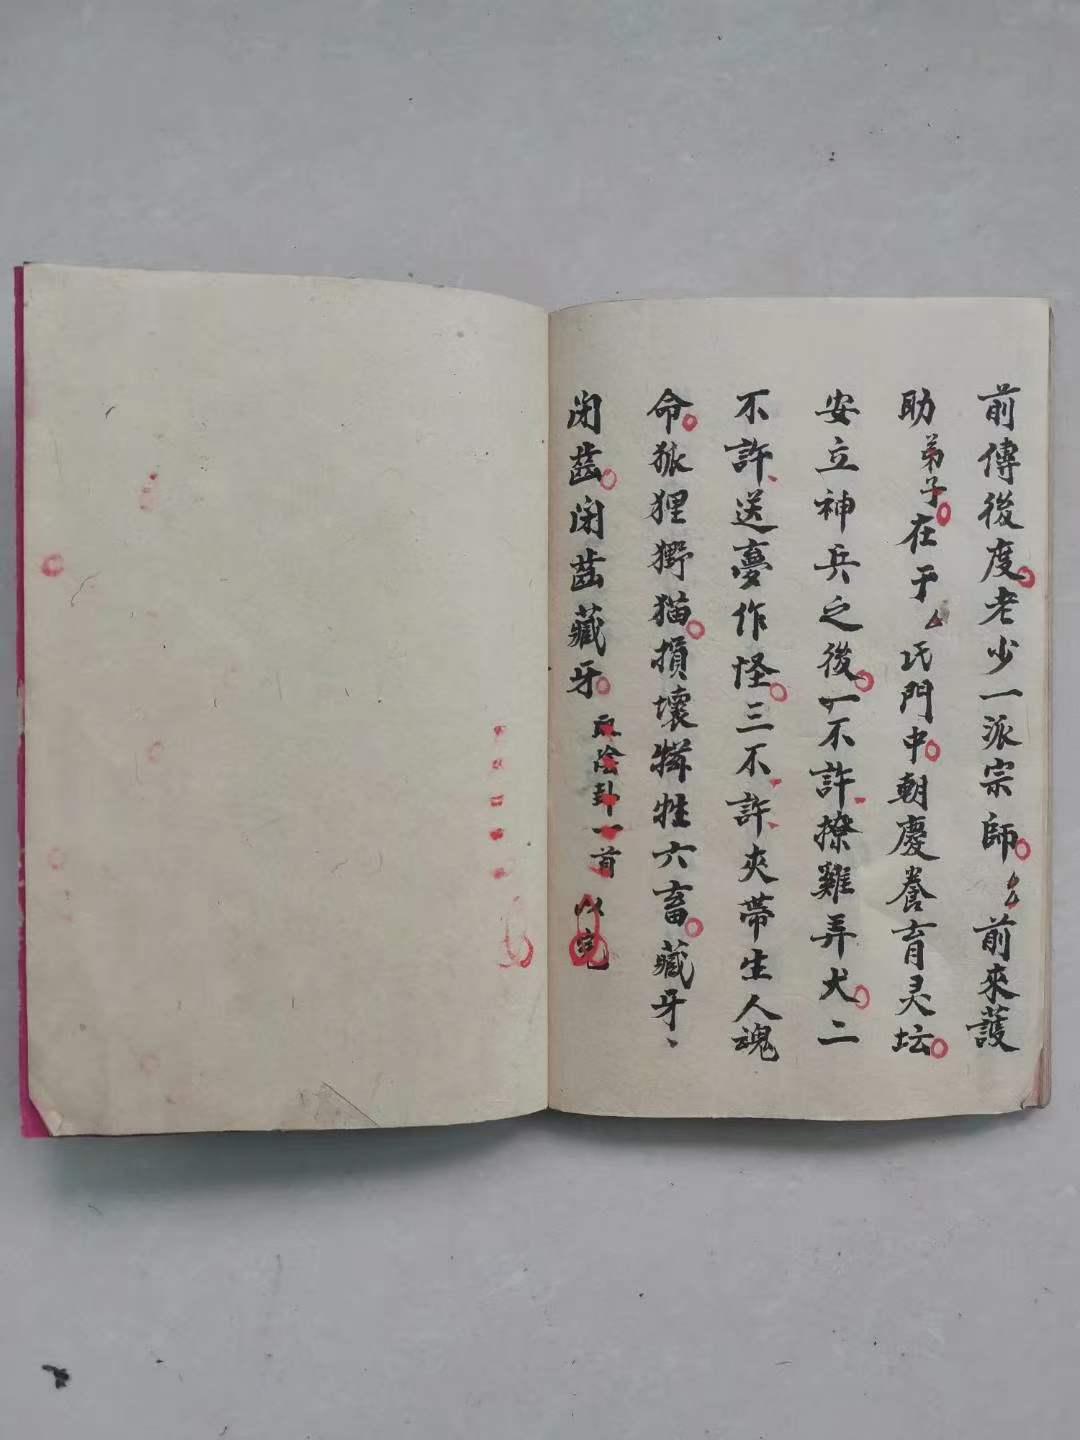 前傳後度老少一派宗師厶厶前來護
助弟子在于厶氏門中朝慶養育灵坛
安立神兵之後一不許撩雞弄犬二
不許送夢作怪三不許夾帶生人魂
命狐狸獸猫損壞犧牲六畜藏牙
闭齒闭齒藏牙
陰卦一首
以完